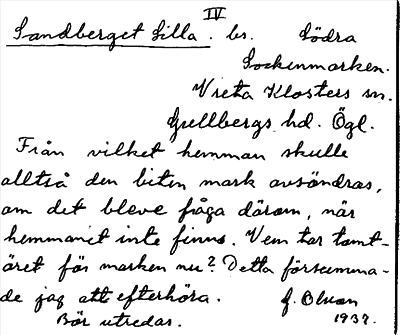 IV
Sandberget Lilla. br. Södra
Sockenmarken.
Vreta Klosters sn.
Gullbergs hd. Ögl.
Från vilket hemman skulle
alltså den biten mark avsöndras,
om det bleve fråga därom, när
hemmanet inte finns. Vem tar tomt-
öret för marken nu? Detta försumma-
de jag att efterhöra. J. Olson
Bör utredas. 1937.